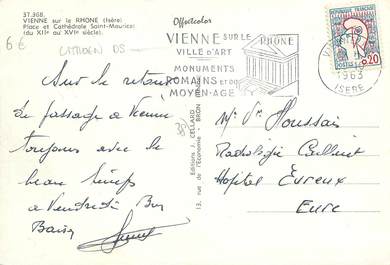 37.368.
VIENNE sur le RHONE (Isère)
Place et Cathédrale Saint-Maurice
(du XIIe au XVIe siècle).
6€
CITROEN DS
Offsetcolor
VIENNE SUR LE RHONE
VILLE D'ART
MONUMENTS
ROMAINS ET DU
MOYEN-AGE
1963
ISERE
REPUBLIQUE FRANCAISE
POSTES
0,20
Sur le retour
de passage a Vienne
toujours avec le
beau temps
a Vendredi Bon
Baiser
Editions J. CELLARD
13, rue de l'Economie - BRON
Houssais
Radiologie
Hopital Evreux
Eure